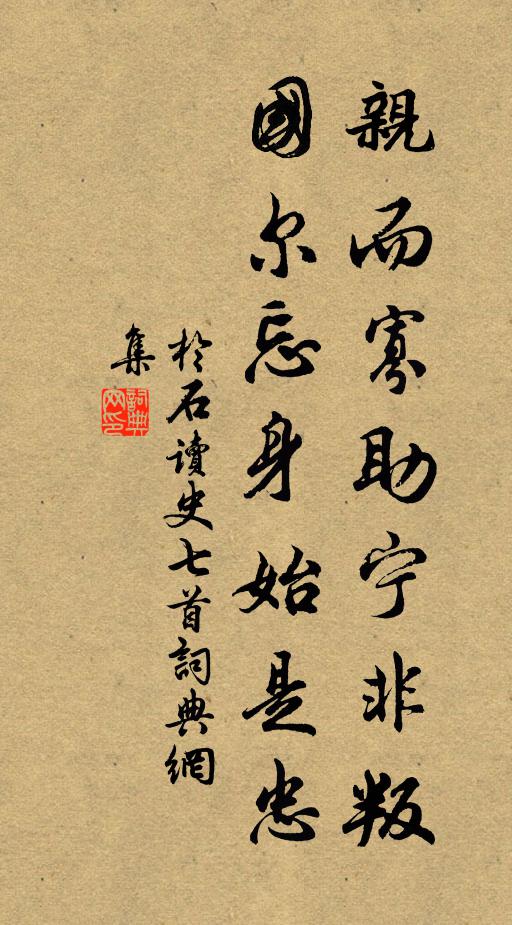 親而寡助宁非叛
國尔忘身始是忠
於石讀史七首詞典網
集
詞典網印